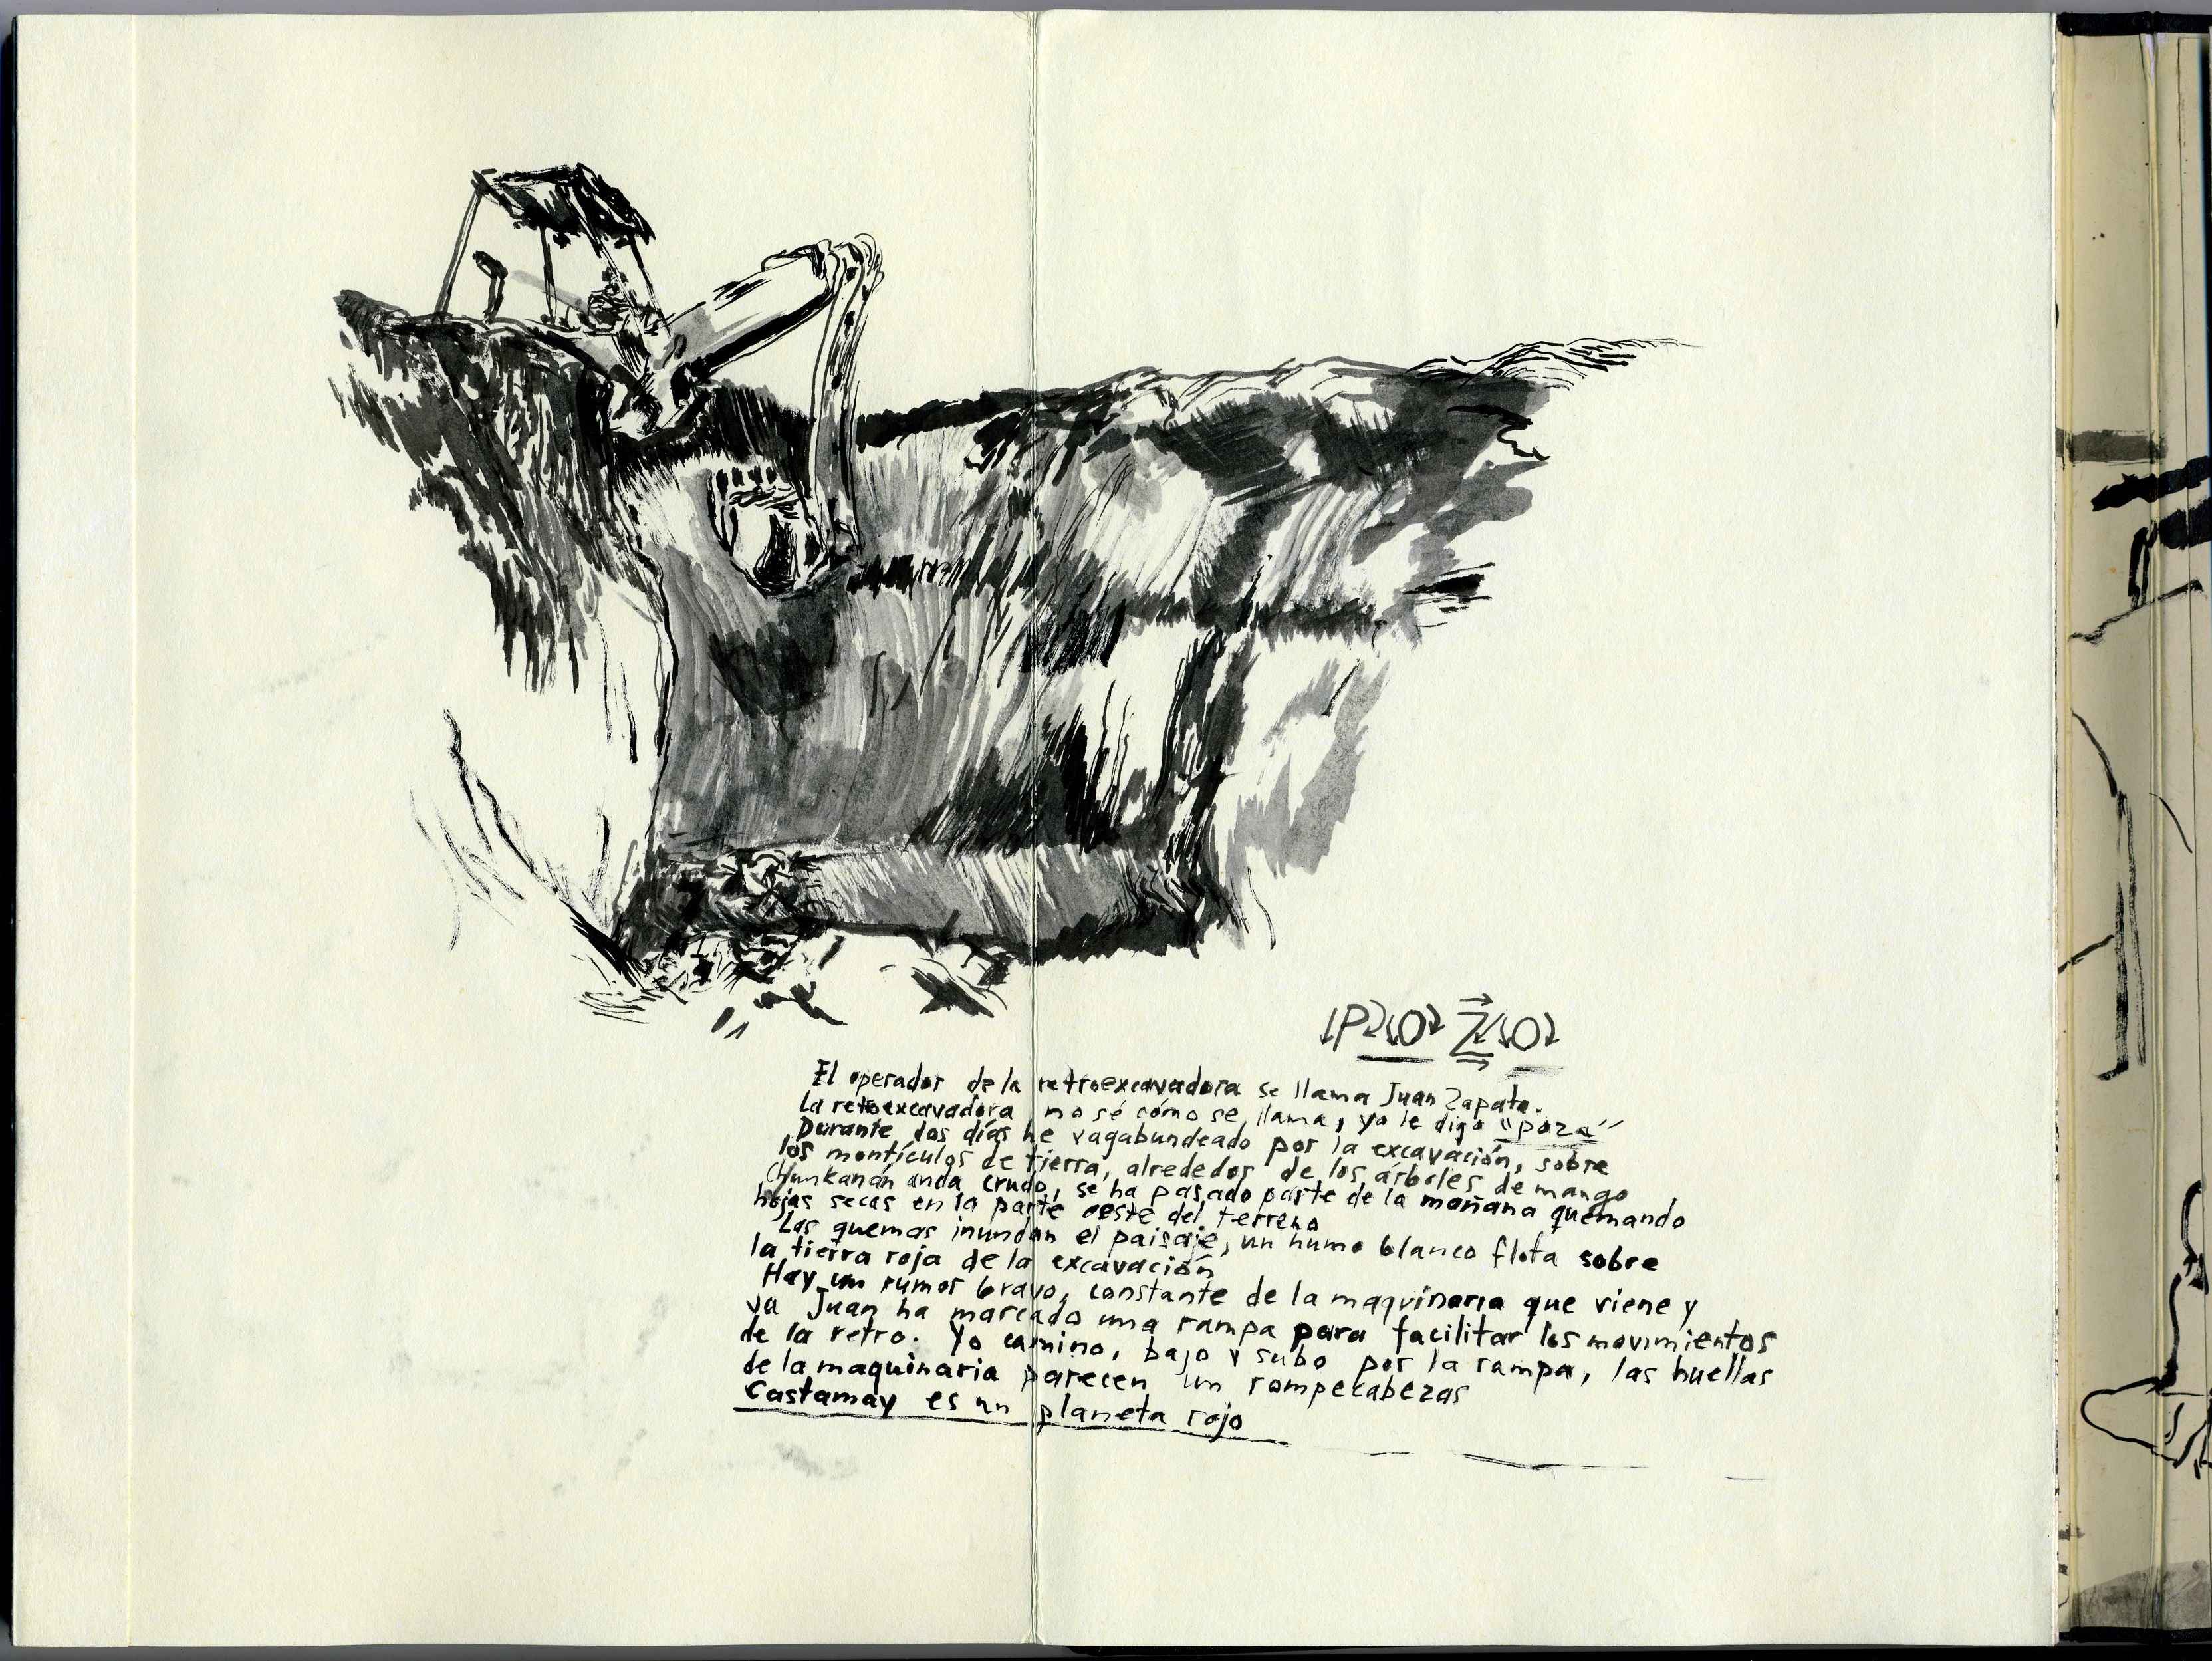 POZO
El operador de la retroexcavadora se llama Juan Zapata.
La retroexcavadora, no sé cómo se llama, yo le digo "poza"
Durante dos días he vagabundeado por la excavación, sobre
los montículos de tierra, alrededor de los árboles de mango
Chunkanán anda crudo, se ha pasado parte de la mañana quemando
hojas secas en la parte oeste del terreno
Las quemas inundan el paisaje, un humo blanco flota sobre
la tierra roja de la excavación
Hay un rumor bravo, constante de la maquinaria que viene y
va Juan ha marcado una rampa para facilitar los movimientos
de la retro. Yo camino, bajo y subo por la rampa, las huellas
de la maquinaria parecen un rompecabezas
Castamay es un planeta rojo